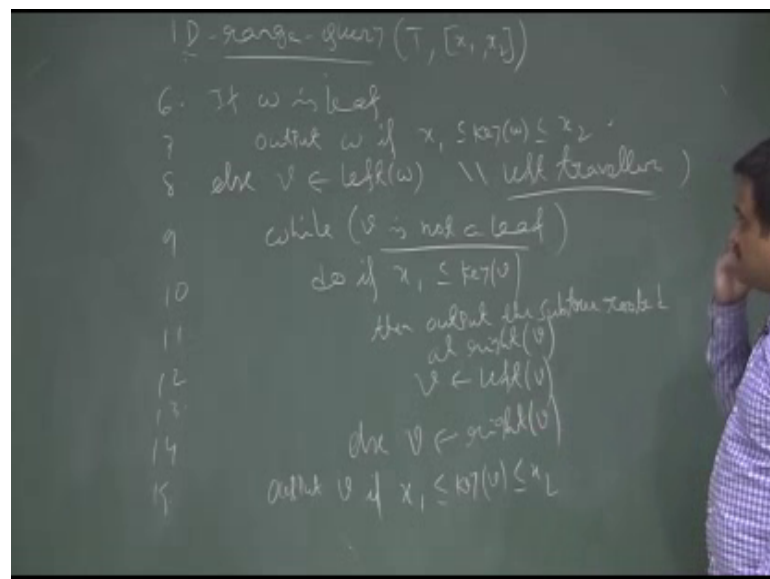 1D-range-query (T, [x₁, x₂])
6. If w is leaf
7 output w if x₁ ≤ key(w) ≤ x₂
8 else v ← left(w) \\ left traveller )
9 while (v is not a leaf)
10 do if x₁ ≤ key(v)
11 then output the subtree rooted
at right(v)
12 v ← left(v)
13
14 else v ← right(v)
15 output v if x₁ ≤ key(v) ≤ x₂